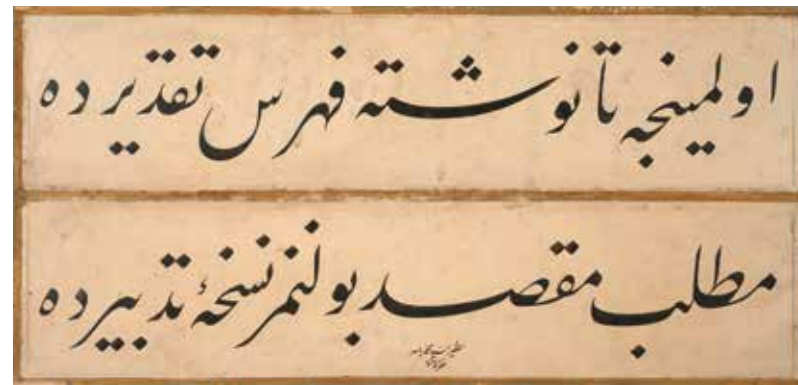 اولمينجه تا نوشته فهرس تقديرده
مطلب مقصد بولنمز نسخهٔ تدبيرده